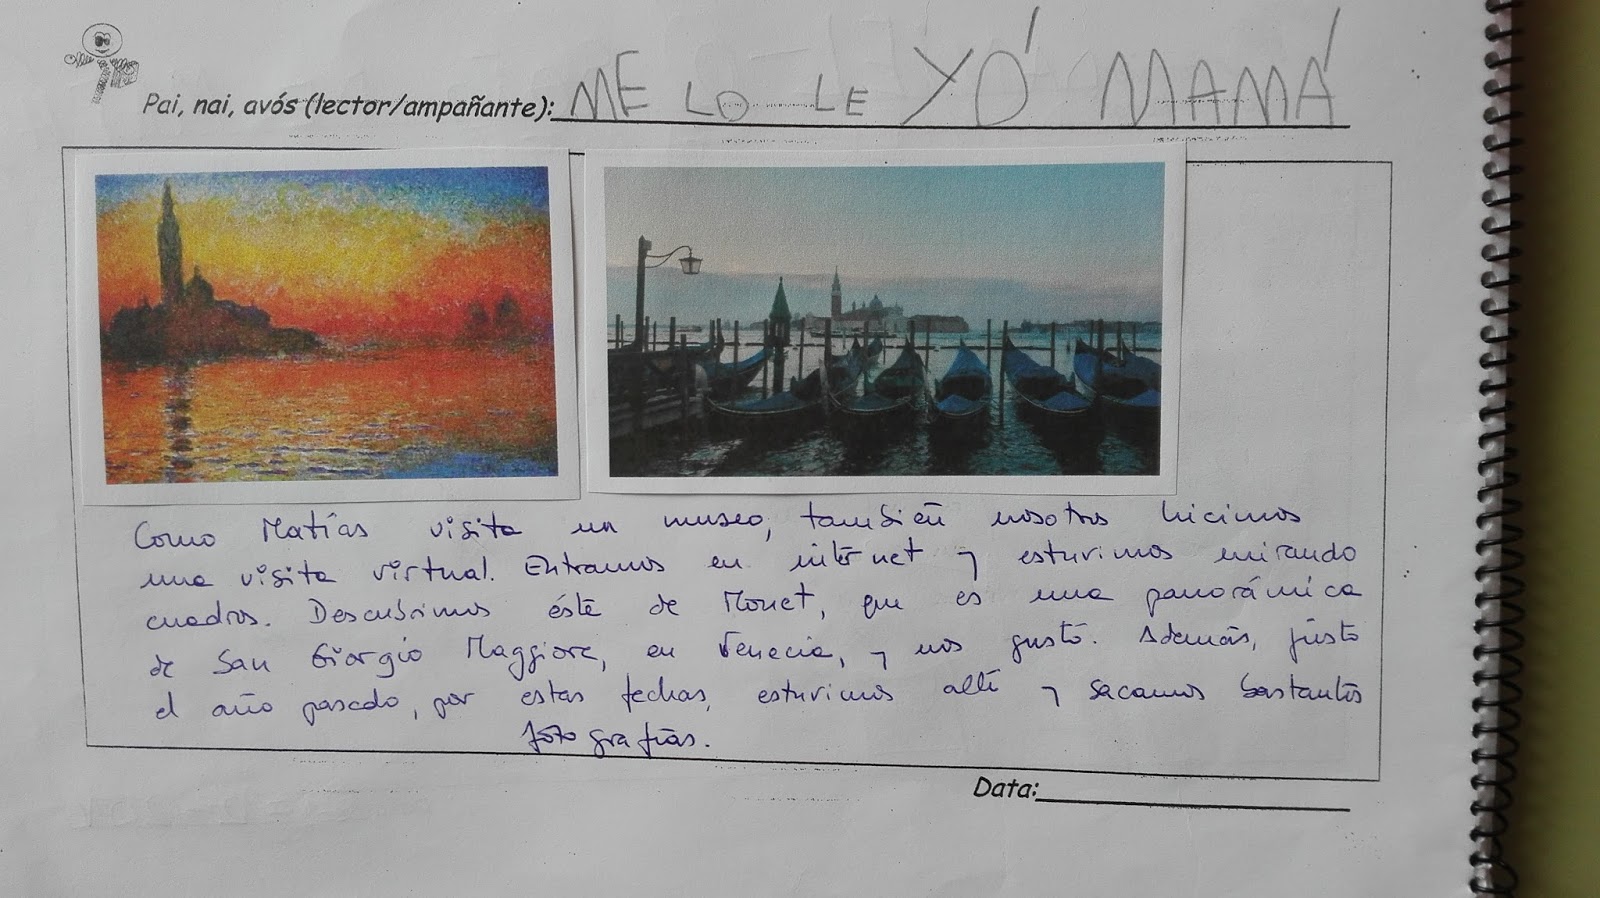 Pai, nai, avós (lector/ampañante): ME LO LE YÓ MAMÁ
Como Matías visita un museo, también nosotros hicimos
una visita virtual. Entramos en internet y estuvimos mirando
cuadros. Descubrimos éste de Monet, que es una panorámica
de San Giorgio Maggiore, en Venecia, y nos gustó. Además, justo
el año pasado, por estas fechas, estuvimos allí y sacamos bastantes
fotografías.
Data: